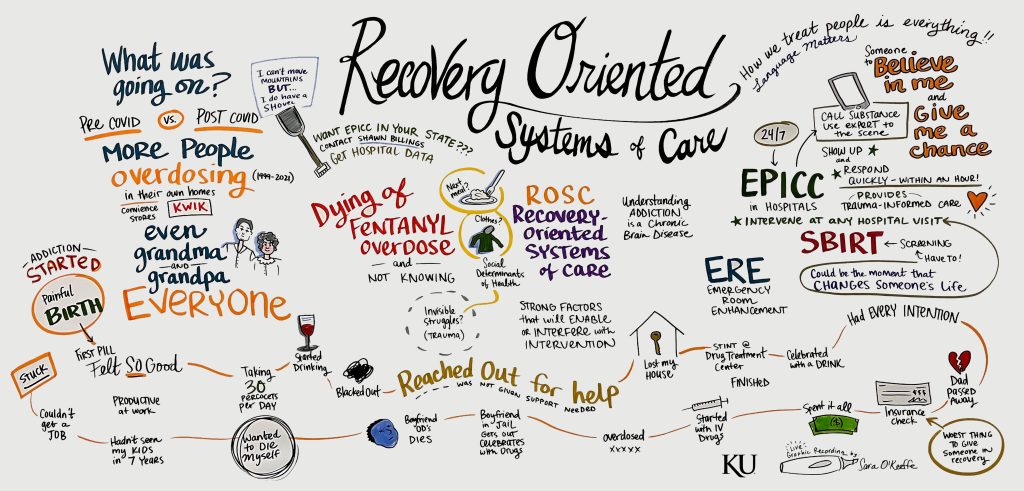 What was
going on?
PRE COVID vs. POST COVID
MORE People
overdosing (1999-2021)
in their own homes
CONVIENCE
STORES
KWIK
even
grandma
AND
grandpa
EVERYONE
I can't move
MOUNTAINS
BUT...
I do have a
SHOVEL
Recovery Oriented
Systems of Care
WANT EPICC IN YOUR STATE???
CONTACT SHAWN BILLINGS
GET HOSPITAL DATA
Dying of
FENTANYL
overdose
and
NOT KNOWING
Next
meal?
Clothes?
Social
Determinants
of Health
Invisible
Struggles?
(TRAUMA)
ROSC
RECOVERY-
Oriented
SYSTEMS
of CARE
STRONG FACTORS
that will ENABLE
or INTERFERE with
INTERVENTION
Understanding
ADDICTION
is a Chronic
Brain Disease
How we treat people is everything!!
Language Matters
Someone
to Believe
in me
and
Give
me a
chance
24/7
CALL SUBSTANCE
USE EXPERT TO
the SCENE
EPICC
in HOSPITALS
SHOW UP
and
RESPOND
QUICKLY - WITHIN AN HOUR!
PROVIDES
TRAUMA-INFORMED CARE
INTERVENE AT ANY HOSPITAL VISIT
SBIRT
SCREENING
HAVE TO!
Could be the moment that
CHANGES Someone's Life
ERE
EMERGENCY
ROOM
ENHANCEMENT
ADDICTION
STARTED
Painful
BIRTH
FIRST PILL
Felt SO Good
PRODUCTIVE
at work
Taking
30
percocets
per DAY
Started
Drinking
Blacked Out
Reached Out for help
WAS NOT GIVEN SUPPORT NEEDED
Lost my
HOUSE
STINT @
Drug Treatment
Center
FINISHED
Celebrated
with a DRINK
Had EVERY INTENTION
Dad
PASSED
AWAY
WORST THING
TO GIVE
Someone IN
recovery
Insurance
check
Spent it all
Started
with IV
Drugs
overdosed
xxxxx
Boyfriend
in JAIL
Gets out
CELEBRATES
with Drugs
Boyfriend
'OD's
DIES
Wanted
to Die
Myself
Hadn't seen
my KIDS
in 7 YEARS
Couldn't
get a
JOB
STUCK
KU
Live
Graphic Recording by
Sara O'Keeffe